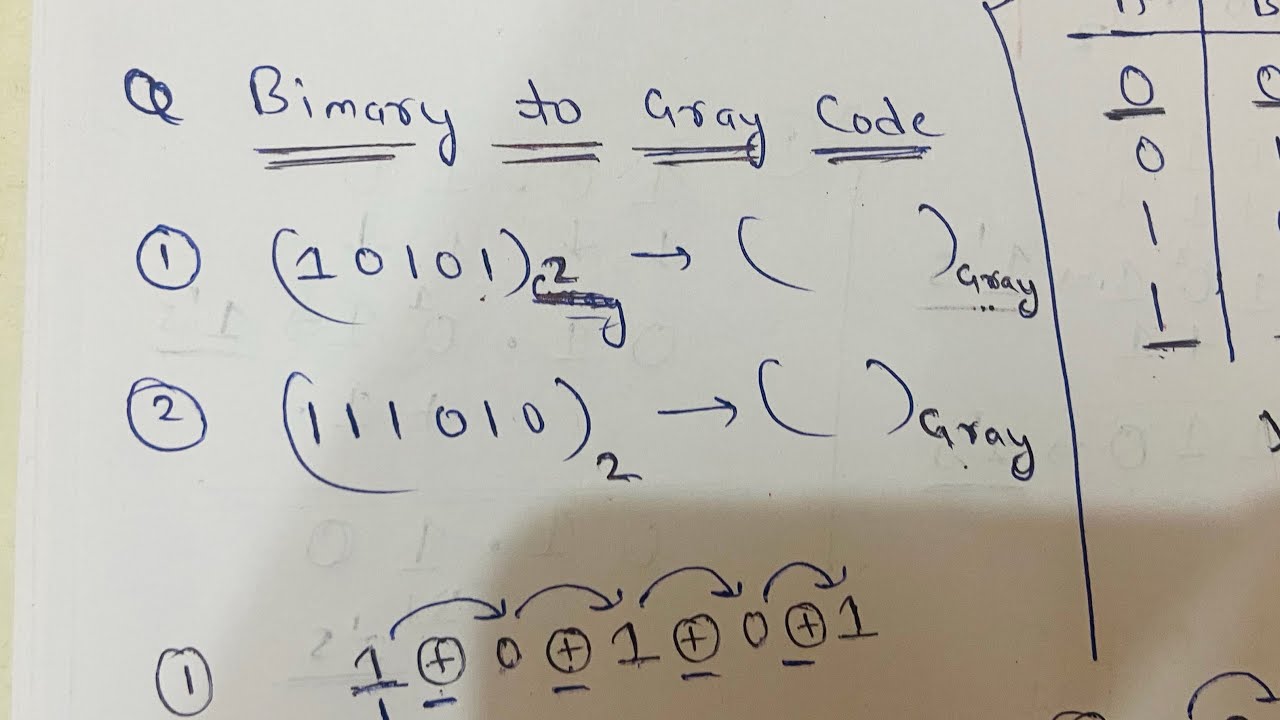 Q Binary to Gray Code
① (10101)₂ → ( )Gray
② (111010)₂ → ( )Gray
① 1 ⊕ 0 ⊕ 1 ⊕ 0 ⊕ 1
0
0
1
1